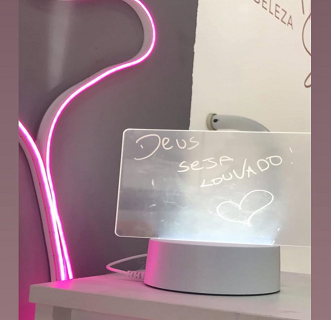 BELEZA
Deus
seja
louvado!